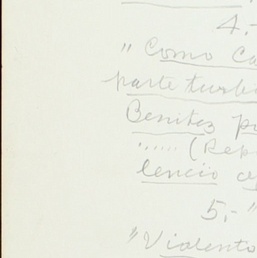 4.-
"Como Ca
parte turbu
Benitez po
"..... (Rep
lencio ce
5,- "
"Violento